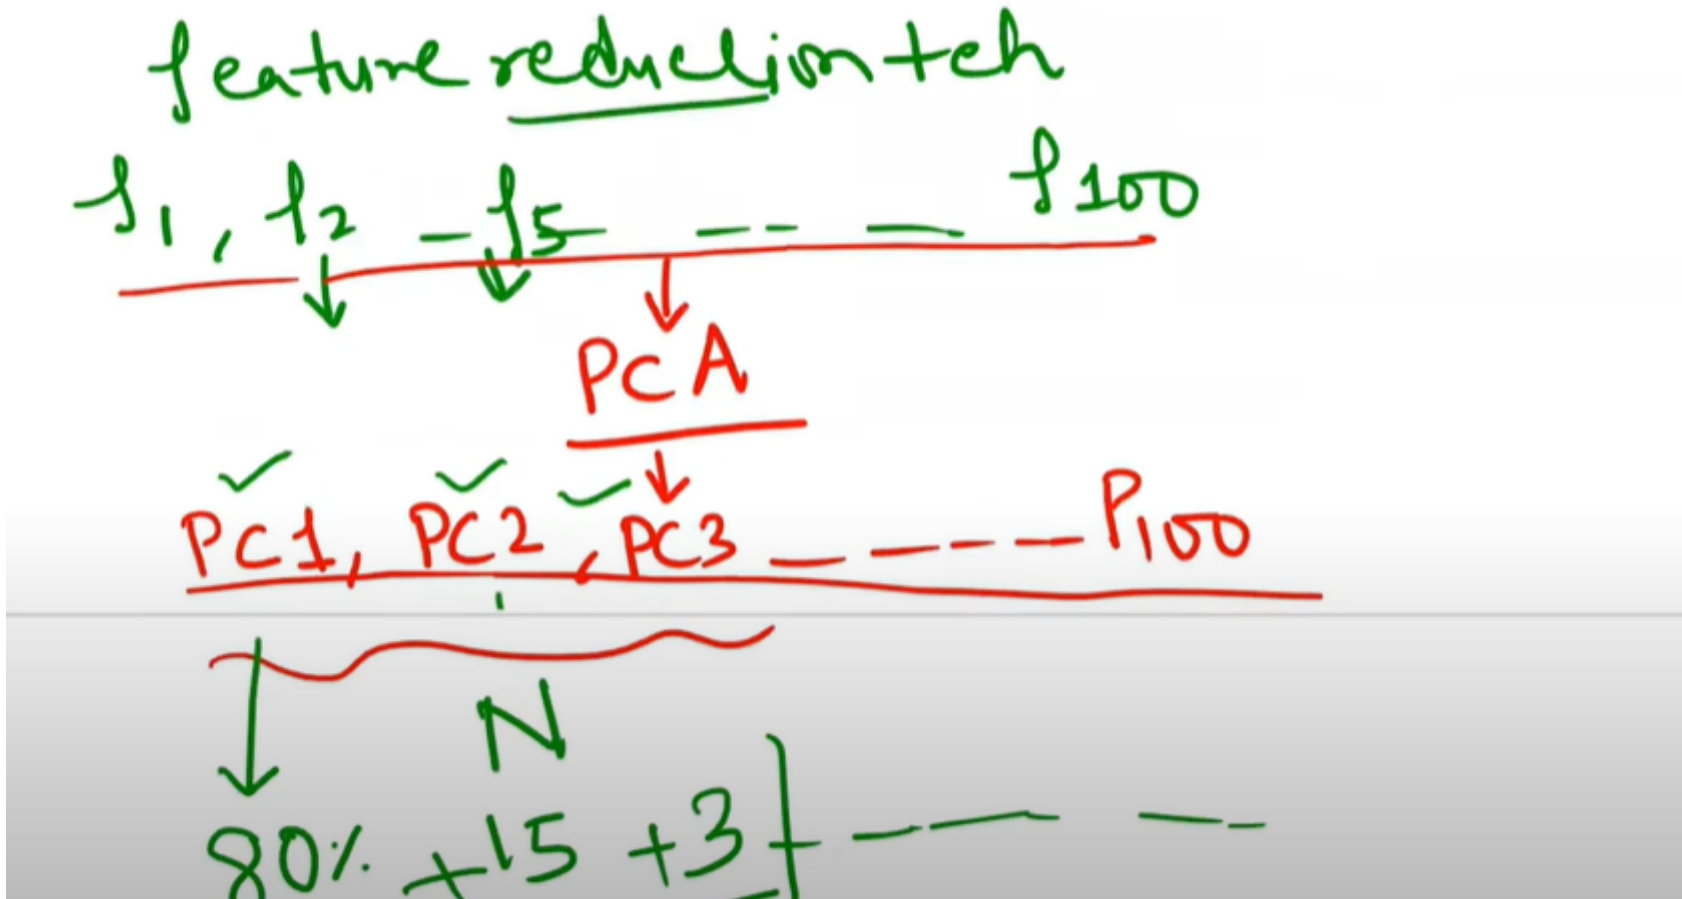 feature reduction teh
f1, f2 _ f5 _ _ _ _ _ f100
PCA
PC1, PC2, PC3 _ _ _ _ _ P100
N
80% +15 +3] _ _ _ _ _